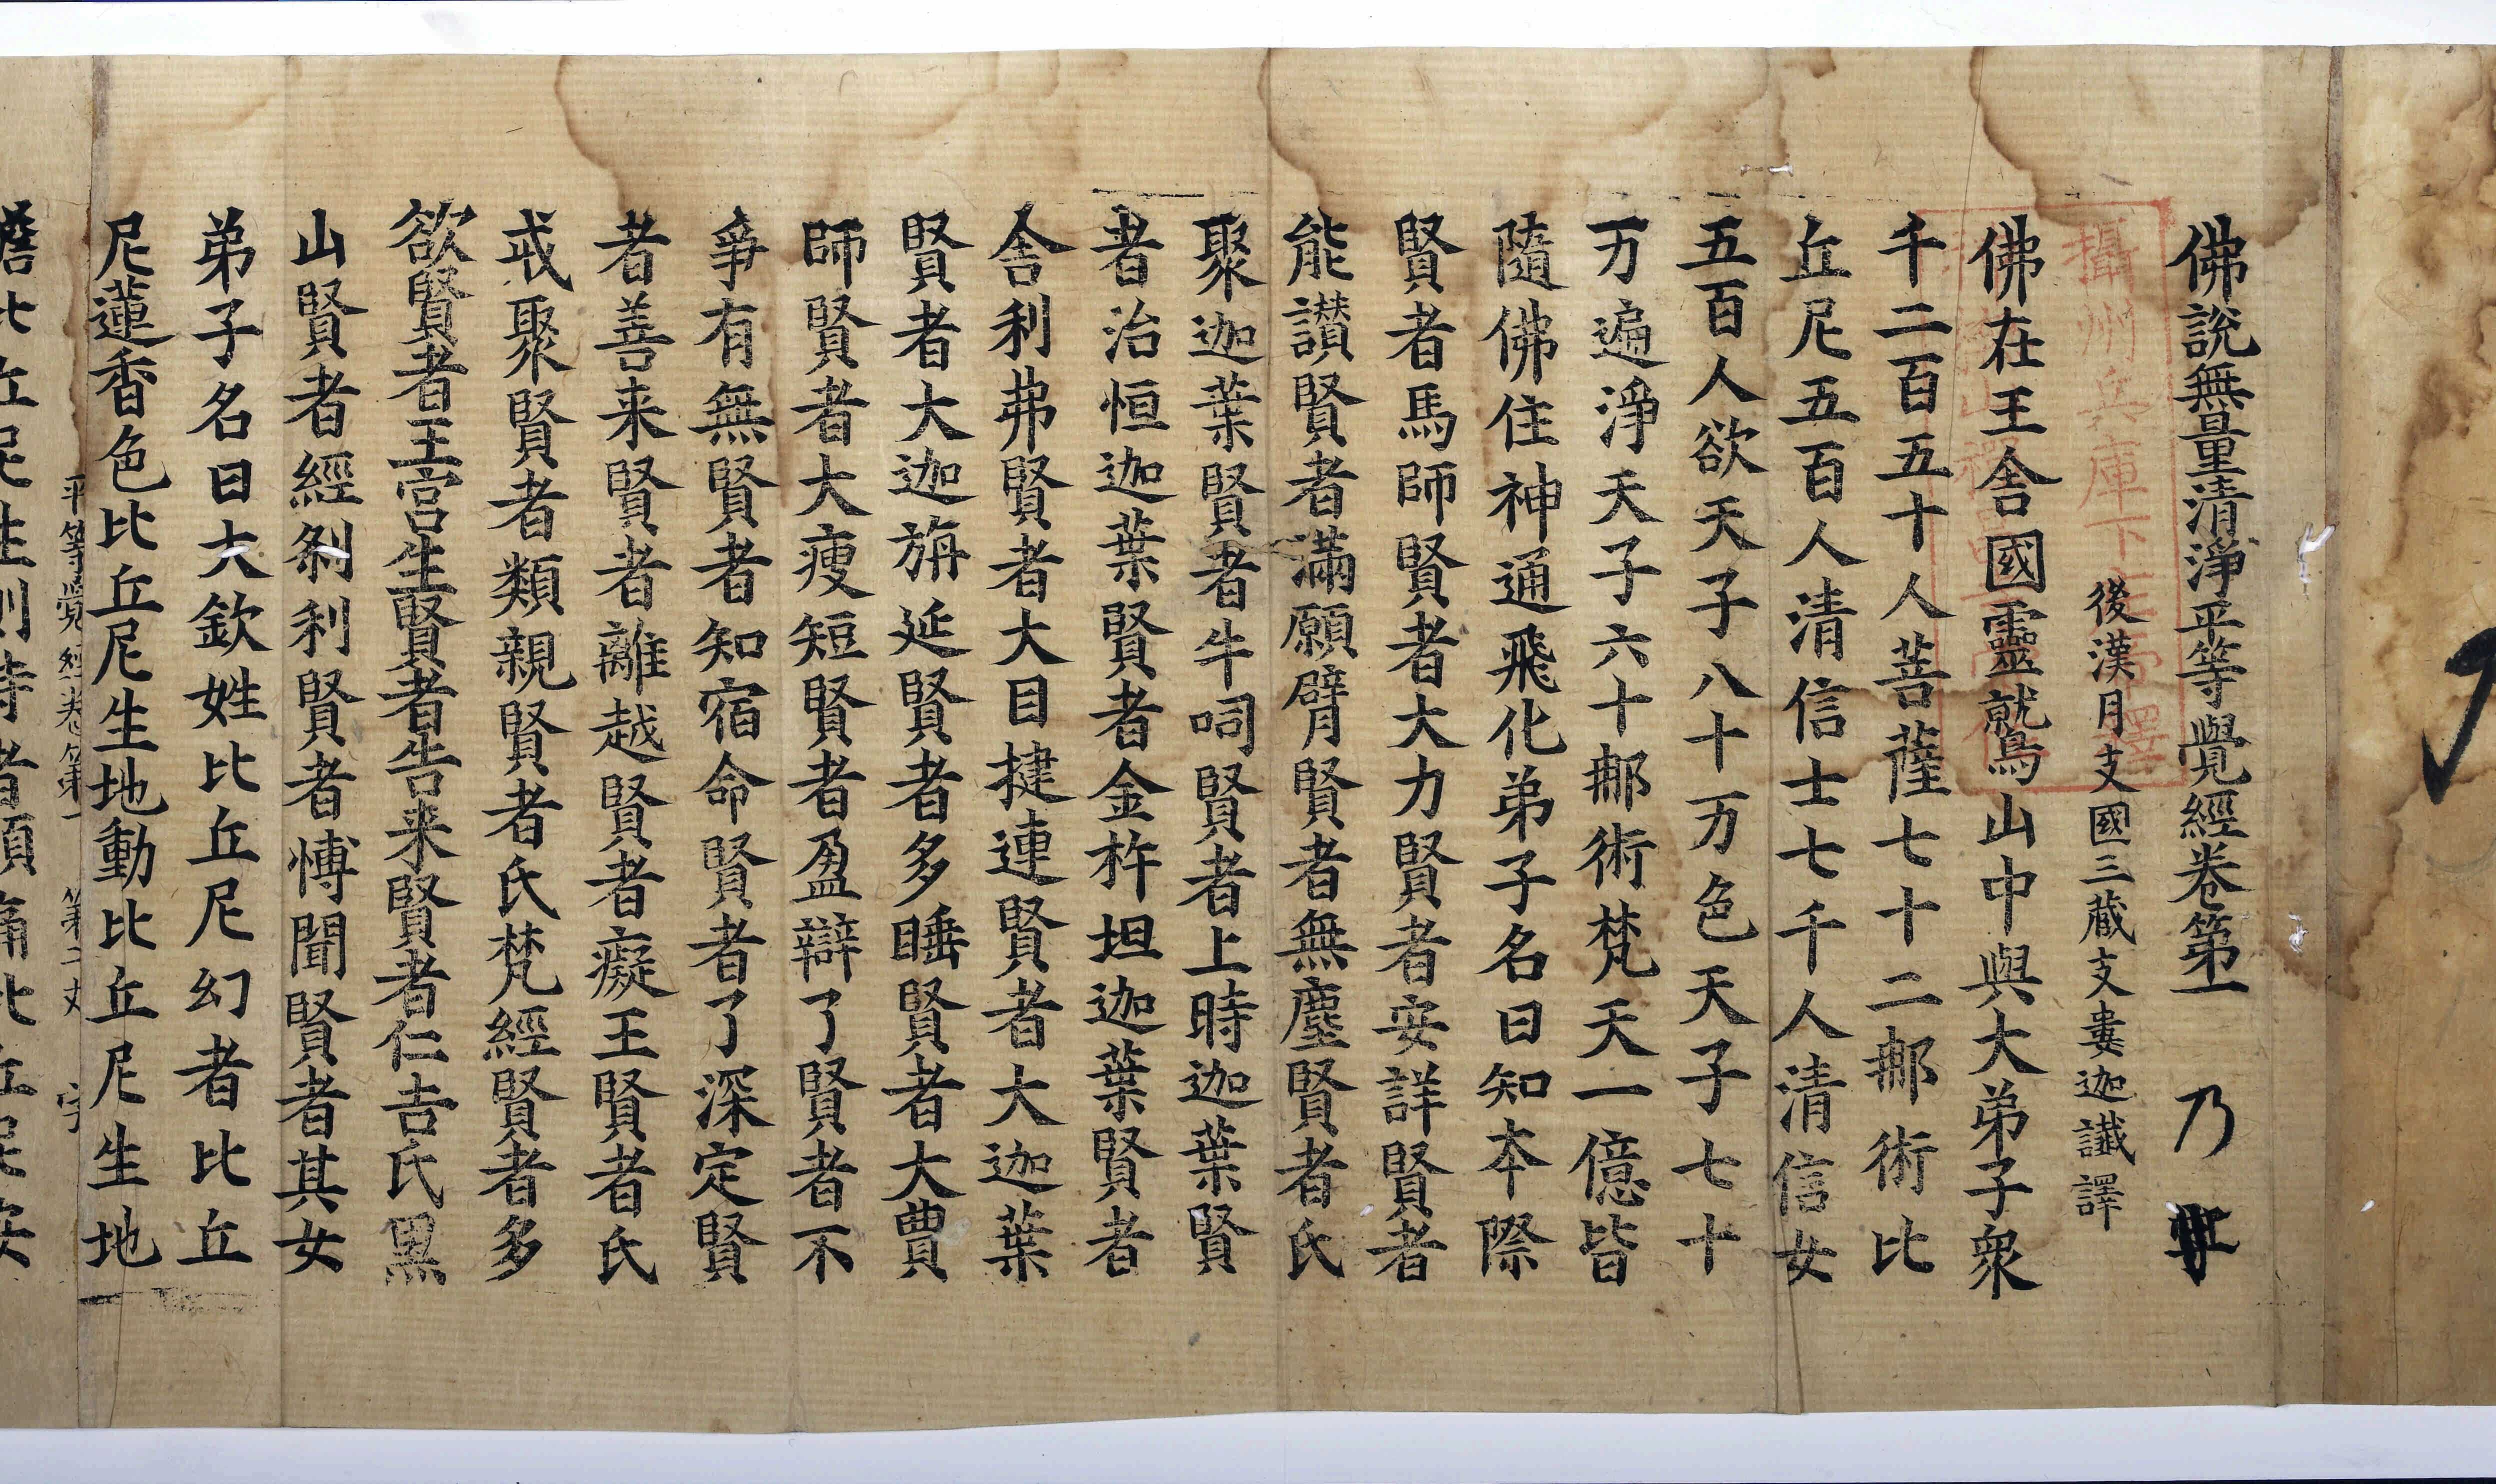 佛說無量清淨平等覺經卷第一 乃
後漢月支國三藏支婁迦讖譯
佛在王舍國靈鷲山中與大弟子衆
千二百五十人菩薩七十二郍術比
丘尼五百人清信士七千人清信女
五百人欲天子八十万色天子七十
万遍淨天子六十郍術梵天一億皆
隨佛住神通飛化弟子名曰知本際
賢者馬師賢者大力賢者安詳賢者
能讃賢者滿願臂賢者無塵賢者氏
聚迦葉賢者牛呞賢者上時迦葉賢
者治恒迦葉賢者金杵坦迦葉賢者
舍利弗賢者大目揵連賢者大迦葉
賢者大迦旃延賢者多睡賢者大賈
師賢者大瘦短賢者盈辯了賢者不
爭有無賢者知宿命賢者了深定賢
者善来賢者離越賢者癡王賢者氏
戒聚賢者類親賢者氏梵經賢者多
欲賢者王宮生賢者告来賢者仁吉氏黒
山賢者經刹利賢者愽聞賢者其女
弟子名曰大欽姓比丘尼幻者比丘
尼蓮香色比丘尼生地動比丘尼生地
平等覺經卷第一 第二丈